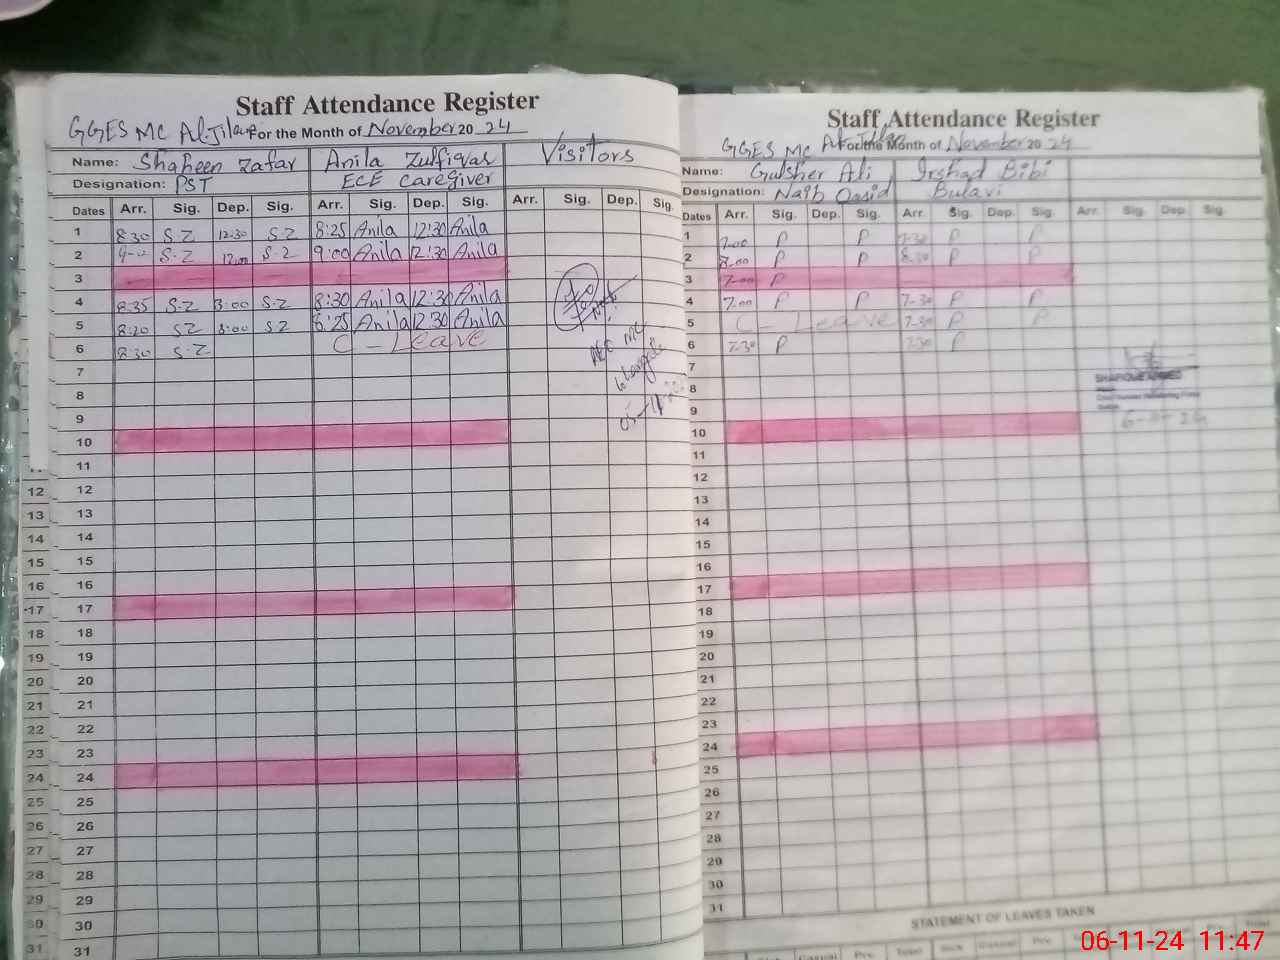 Staff Attendance Register
GGES MC Al Jilan For the Month of November 20 24
Name: Shaheen Zafar Anila Zulfiqar Visitors
Designation: PST ECE Caregiver
Dates Arr. Sig. Dep. Sig. Arr. Sig. Dep. Sig. Arr. Sig. Dep. Sig.
1 8:30 S.Z 12:30 S.Z 8:25 Anila 12:30 Anila
2 9:00 S.Z 12:00 S.Z 9:00 Anila 12:30 Anila
3
4 8:35 S.Z 3:00 S.Z 8:30 Anila 12:30 Anila
5 8:20 SZ 3:00 SZ 8:25 Anila 12:30 Anila
6 8:30 S.Z C - Leave
7
8
9
10
11
12 12
13 13
14 14
15 15
16 16
17 17
18 18
19 19
20 20
21 21
22 22
23 23
24 24
25 25
26 26
27 27
28 28
29 29
30 30
31 31
Staff Attendance Register
GGES MC Al Jilan For the Month of November 20 24
Name: Gulsher Ali Irshad Bibi
Designation: Naib Qasid Bulavi
Dates Arr. Sig. Dep. Sig. Arr. Sig. Dep. Sig. Arr. Sig. Dep. Sig.
1 7:00 P P 7:30 P P
2 8:00 P P 8:30 P P
3 7:00 P
4 7:00 P P 7-30 P P
5 C - Leave 7-30 P P
6 7:30 P 7:30 P
7
8
9
10
11
12
13
14
15
16
17
18
19
20
21
22
23
24
25
26
27
28
29
30
31
STATEMENT OF LEAVES TAKEN
06-11-24 11:47